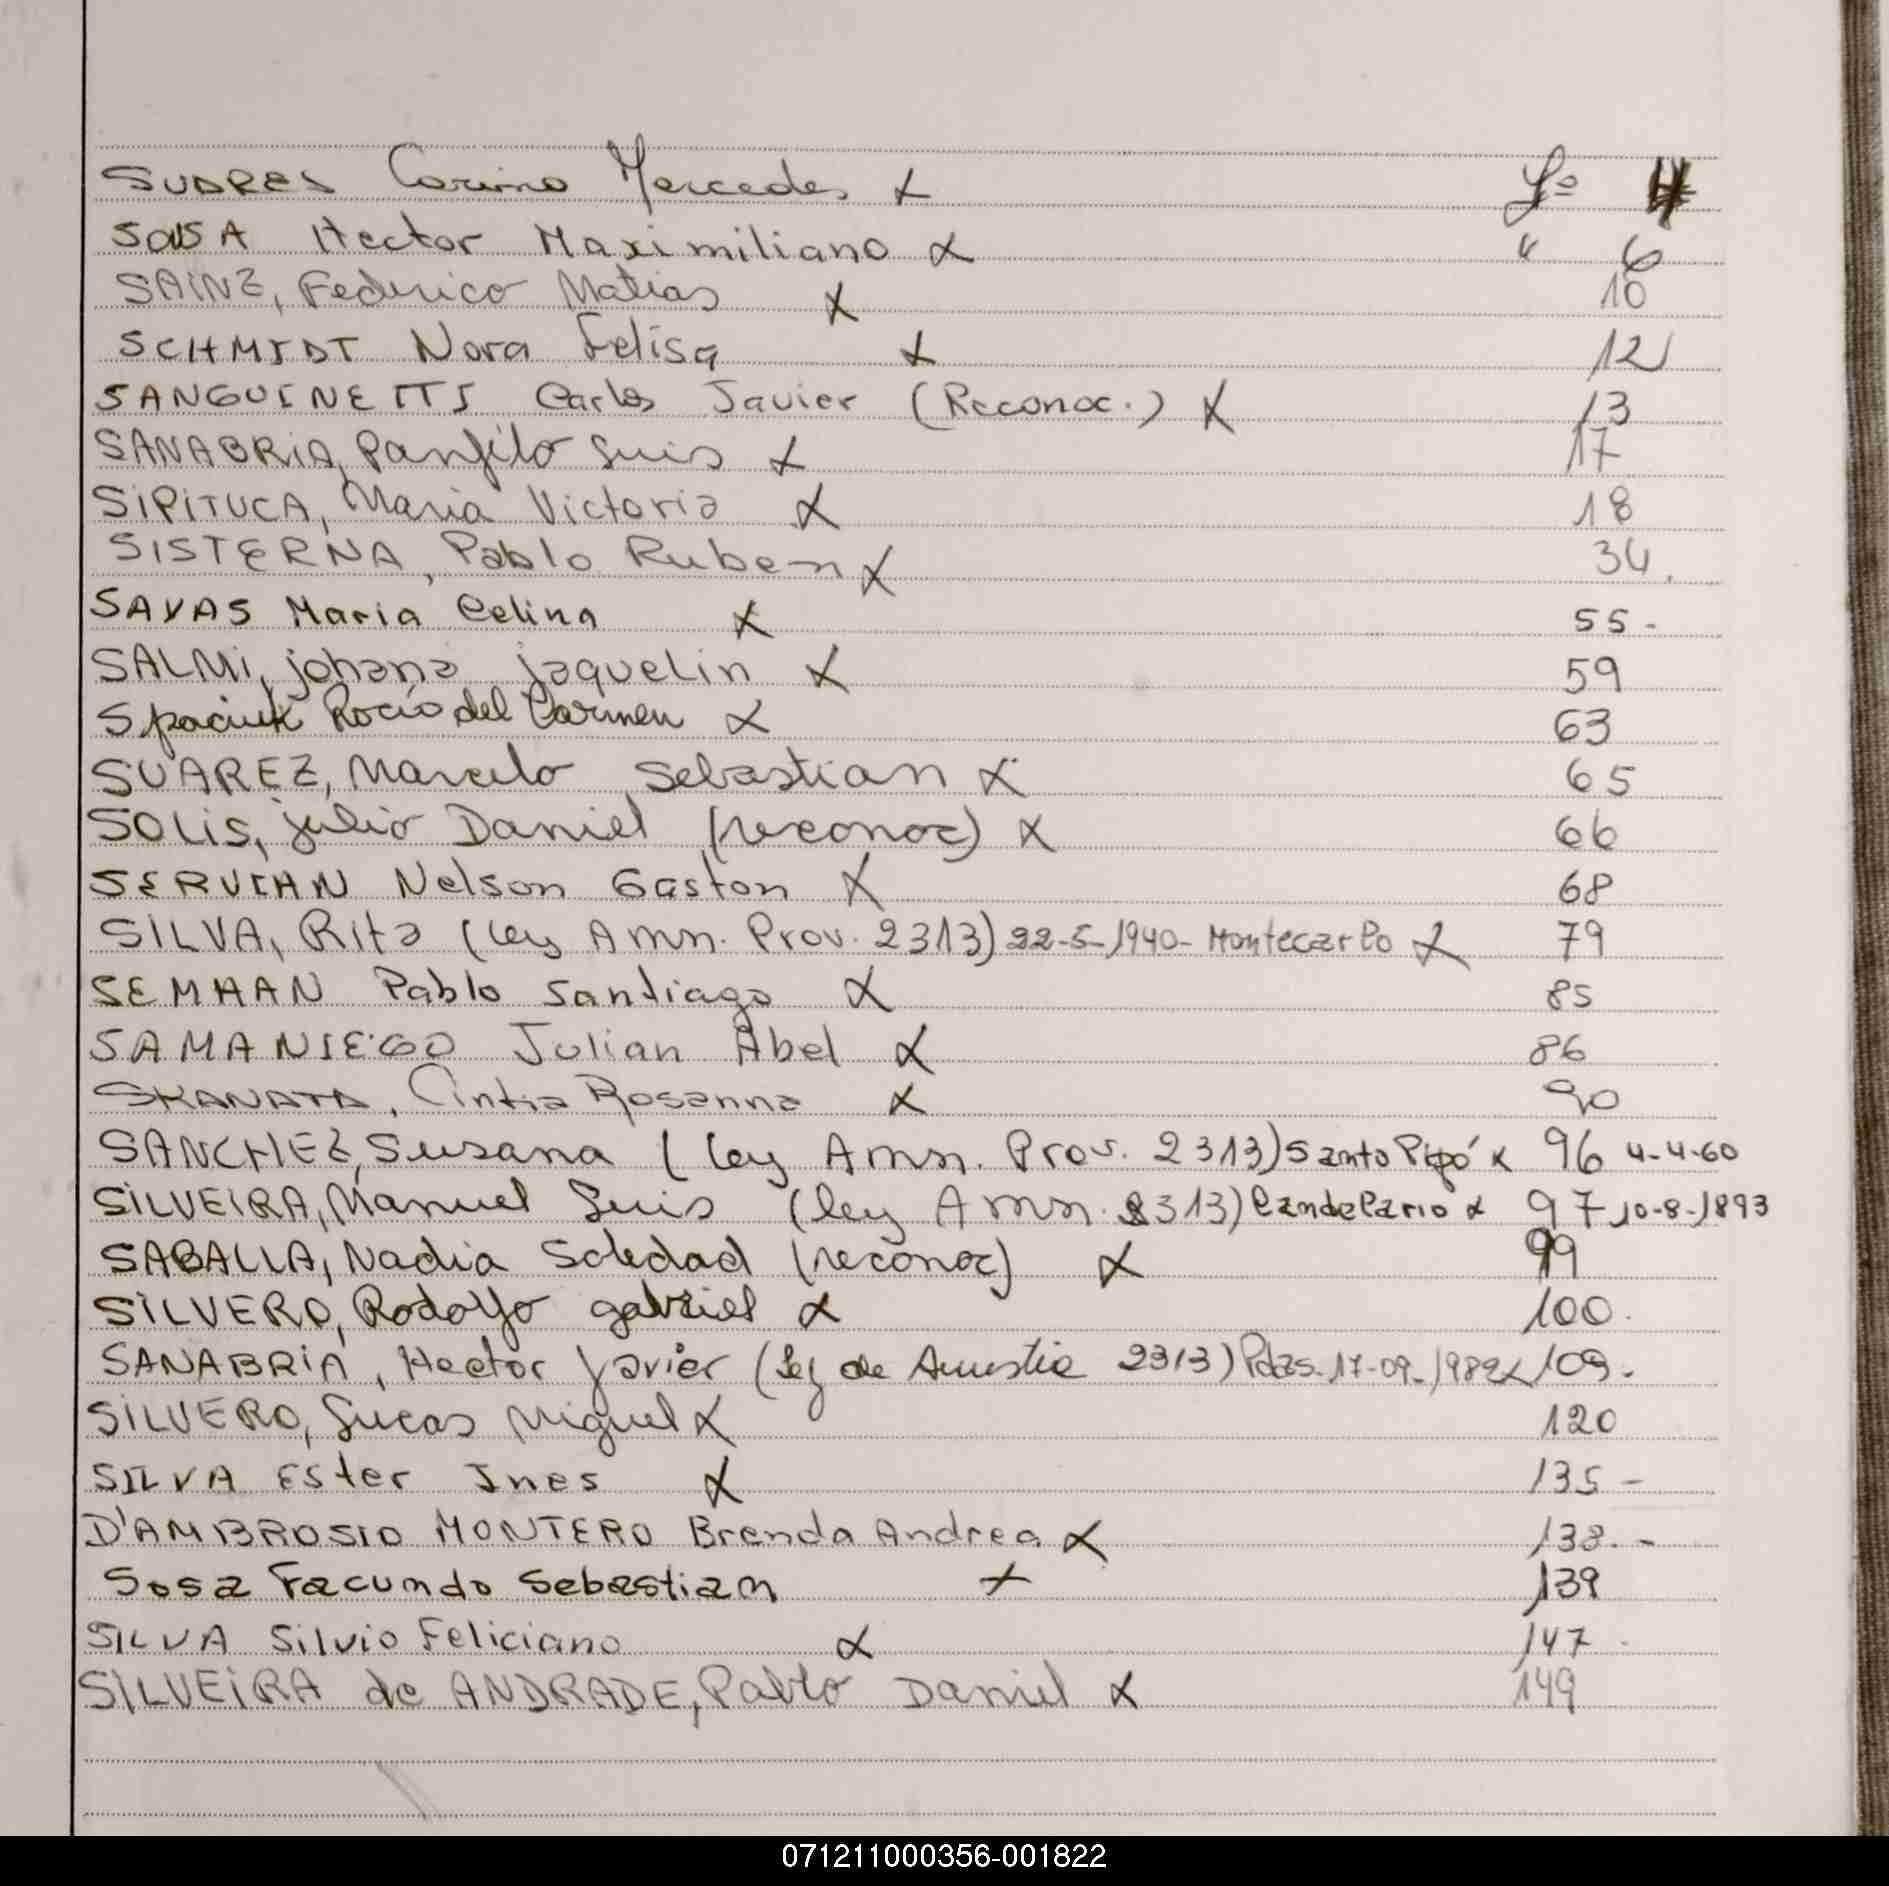 SUARES Corina Mercedes x Fº 4
SOUSA Hector Maximiliano x " 6
SAINZ, Federico Matias x 10
SCHMIDT Nora Felisa x 12
SANGUINETTI Carlos Javier (Reconoc.) x 13
SANABRIA, Panfilo Luis x 17
SIPITUCA, Maria Victoria x 18
SISTERNA, Pablo Ruben x 34.
SAVAS Maria Celina x 55-
SALMI, johana jaquelin x 59
Spaciuk Rocio del Carmen x 63
SUAREZ, Marcelo Sebastian x 65
SOLIS, julio Daniel (reconoc) x 66
SERVIAN Nelson Gaston x 68
SILVA, Rita (ley Amn. Prov. 2313) 22-5-1940- Montecarlo x 79
SEMHAN Pablo Santiago x 85
SAMANIEGO Julian Abel x 86
SKANATA, Cintia Rosanna x 90
SANCHEZ, Susana (ley Amn. Prov. 2313) Santo Pipó x 96 4-4-60
SILVEIRA, Manuel Luis (ley Amn. 2313) Candelario x 97 10-8-1893
SABALLA, Nadia Soledad (reconoc) x 99
SILVERO, Rodolfo gabriel x 100.
SANABRIA, Hector Javier (Ley de Amnstia 2313) Pdas. 17-09-1982 x 109.
SILVERO, Lucas Miguel x 120
SILVA Ester Ines x 135-
D'AMBROSIO MONTERO Brenda Andrea x 138.-
Sosa Facundo Sebastian x 139
SILVA Silvio Feliciano x 147
SILVEIRA de ANDRADE, Pablo Daniel x 149
071211000356-001822